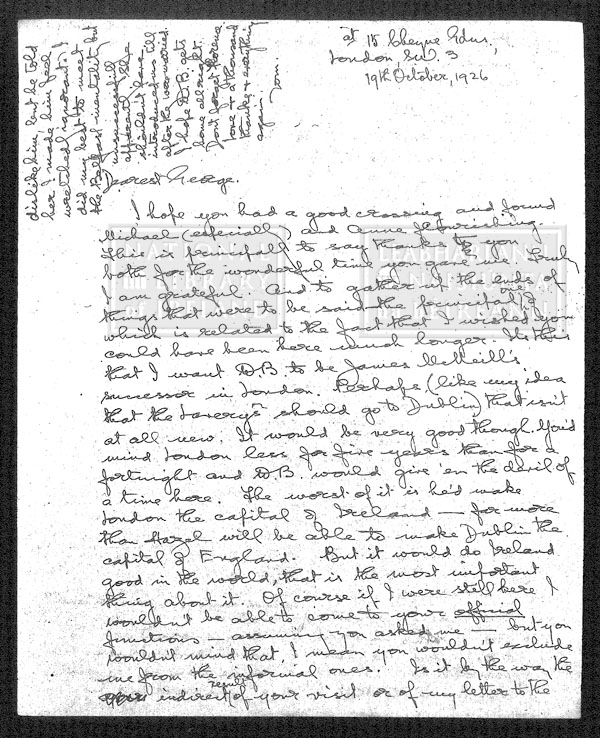 at 15 Cheyne Gdns,
London, S.W. 3
19th October, 1926
Dearest George.
I hope you had a good crossing and found
Michael (especially) and Anne flourishing.
This is principally to say thanks to you
both for the wonderful time you gave us. Truly
I am grateful. And to gather up the ends of
things that were to be said the principal one of
which is related to the fact that I wished you
could have been here much longer. It's this
that I want W.B. to be James McNeill's
successor in London. Perhaps (like my idea
that the Laverys should go to Dublin) that isn't
at all new. It would be very good though. You'd
mind London less for five years than for a
fortnight and W.B. would give 'em the devil of
a time here. The worst of it is he'd make
London the capital of Ireland — for more
than Hazel will be able to make Dublin the
capital of England. But it would do Ireland
good in the world, that is the most important
thing about it. Of course if I were still here I
wouldn't be able to come to your official
functions — assuming you asked me — but you
wouldn't mind that, I mean you wouldn't exclude
me from the informal ones. Is it by the way the
indirect result of your visit or of my letter to the
dislike him, but he told
her I made him feel
wretched & ignorant. I
did my best to meet
the Belfast mentality but
unsuccessfully
apparently. She
shouldn't have
introduced us till
after they were married.
I hope W.B. gets
home all right.
Don't forget
love & a thousand
thanks & everything
again Tom.
NATIONAL
LIBRARY
OF IRELAND
LEABHARLANN
NÁISIÚNTA
NA HÉIREANN